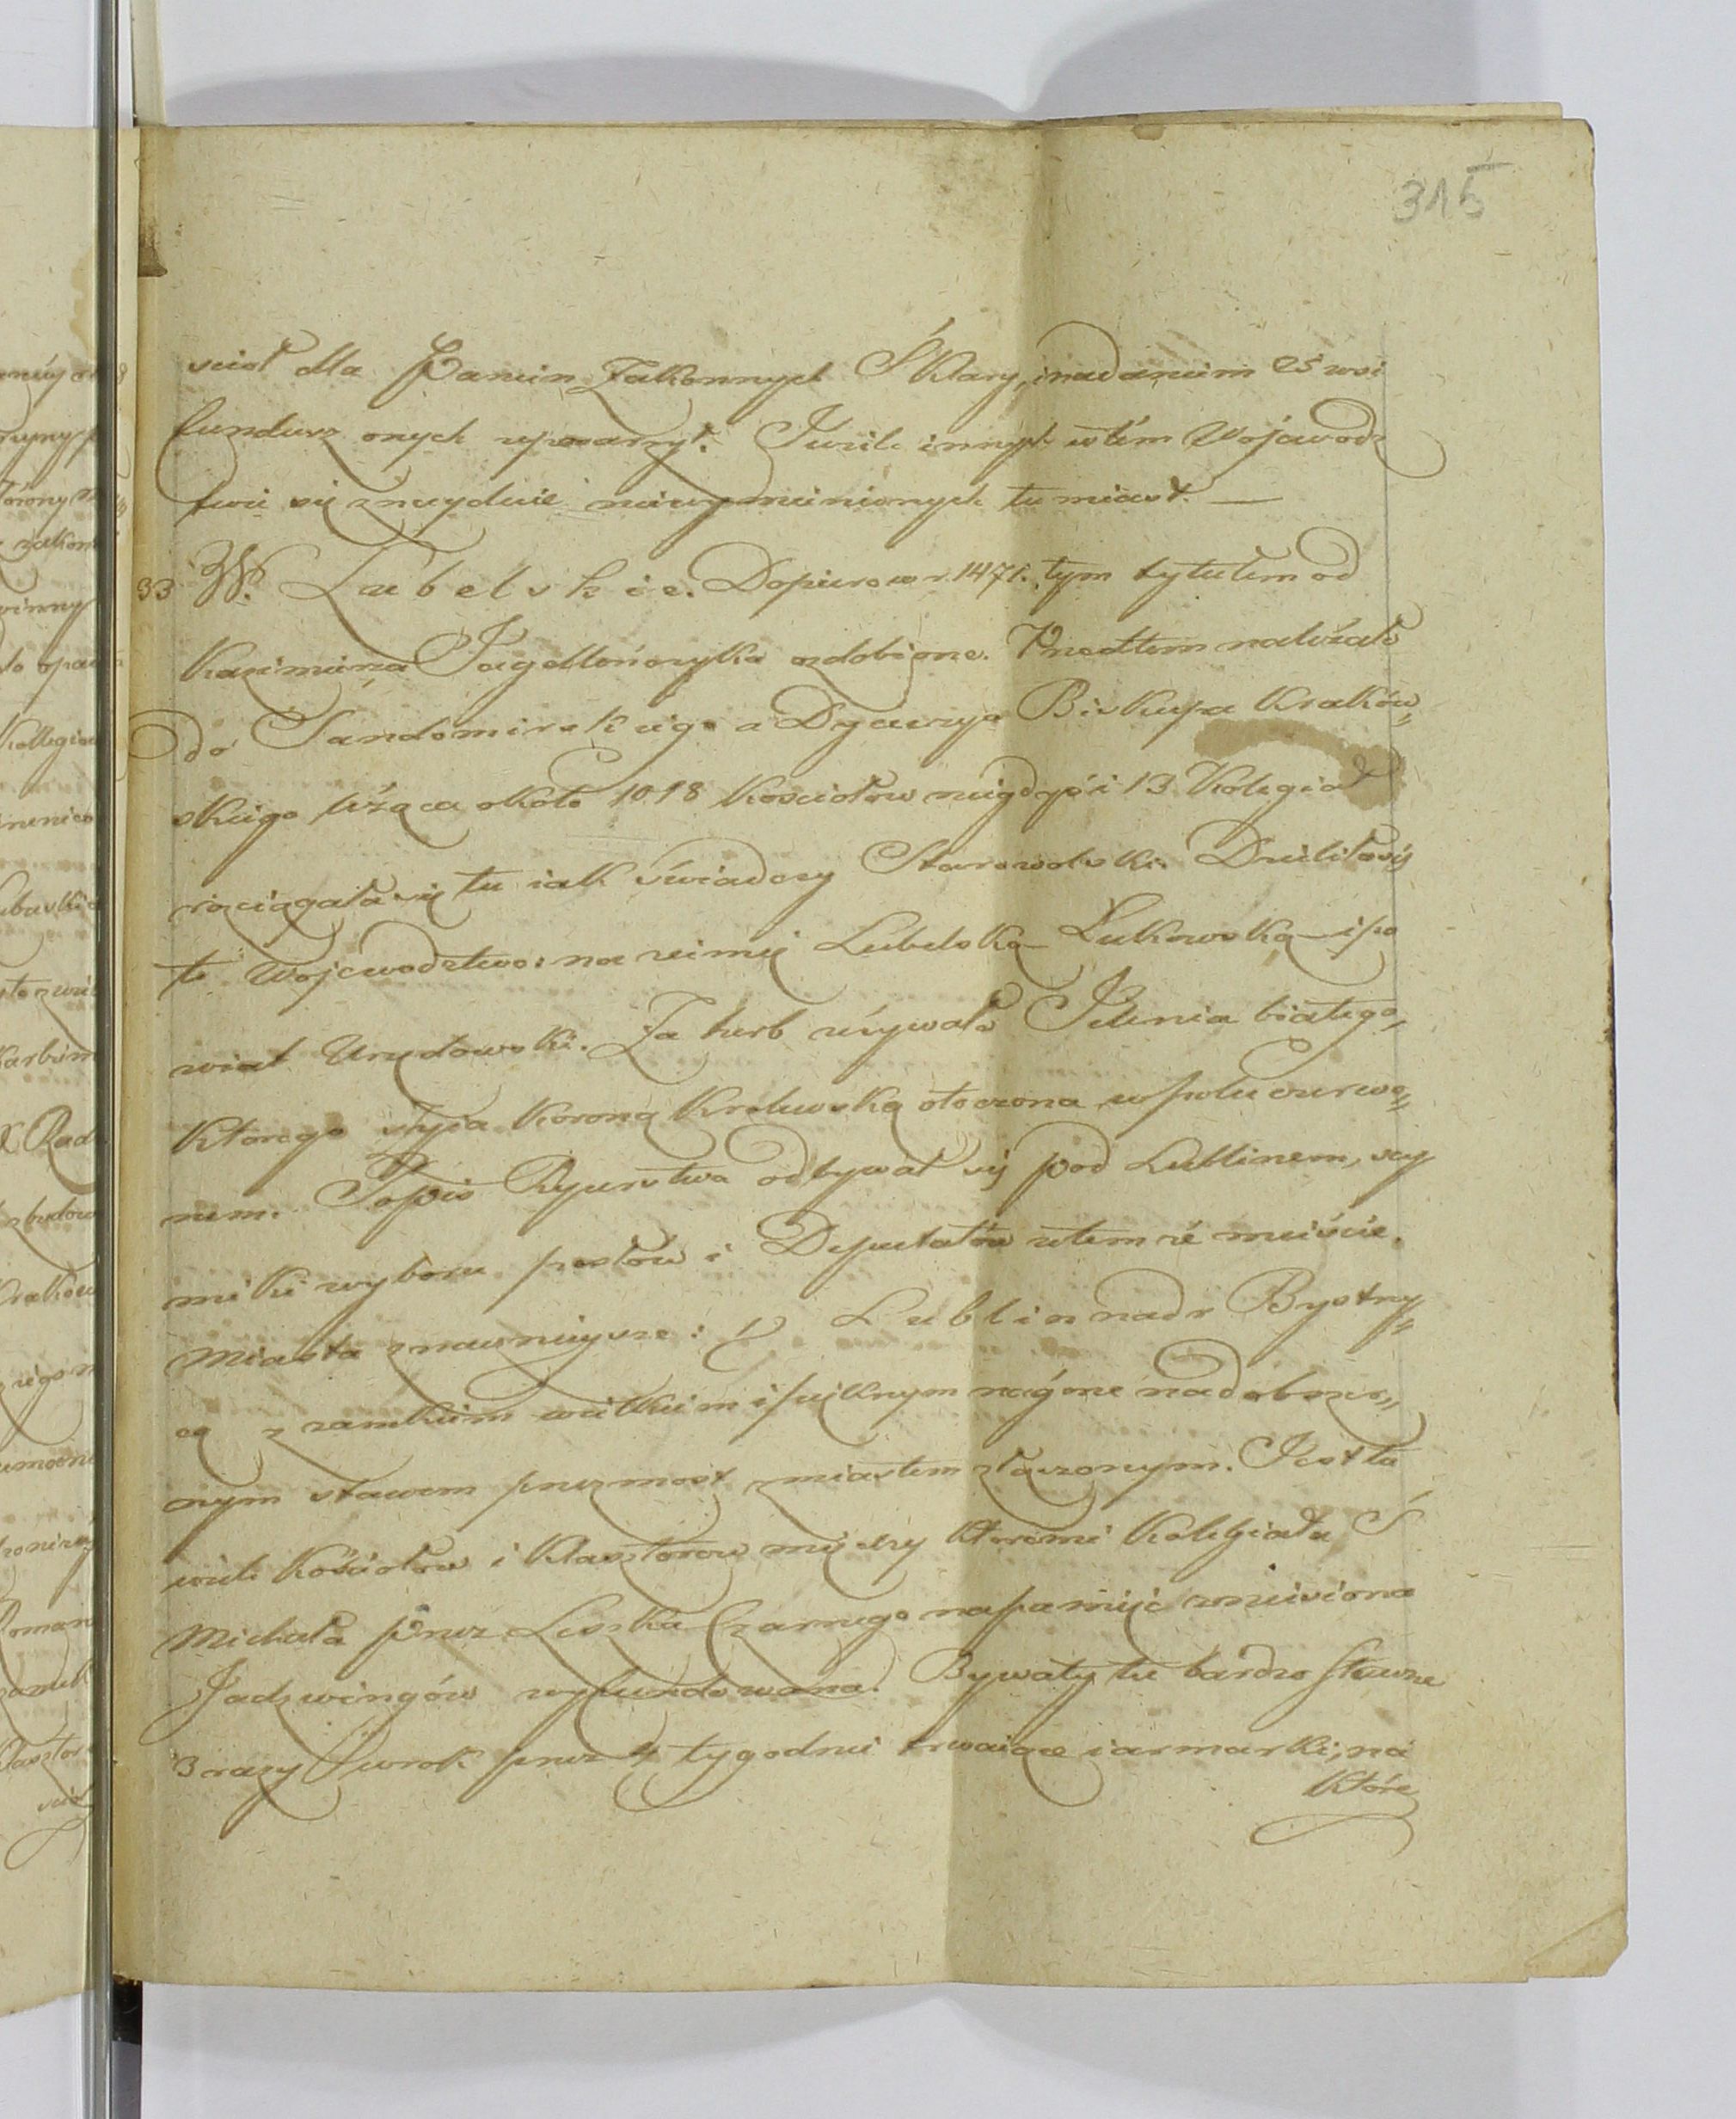 315
scioł dla Panien Zakonnych S Klary, i nadaniem 25 wsi
fundusz onych uposarzył. Jwiele innych w tém Wojewodz
twie się znayduie niewymienionych tu miast. —
33 W. Lubelskie. Dopiero w r. 1471. tym tytułem od
Kazimierza Jagellończyka ozdobione. Przedtem należało
do Sandomirskiego a Dyecezya Biskupa Kraków„
skiego licząca około 1018 kosciołow niegdyś i 13 Kolegiat
rozciągała się tu iak świadczy Starowolski. Dzieliło się
te Wojewodztwo: na ziemię Lubelską — Łukowską — i po
wiat Urzędowski. Za herb używało Jelenia białego„
Ktorego szyia koroną Krolewską otoczona w polu czerwo„
nem. Popis Rycerstwa odbywał się pod Lublinem, sey
miki wyboru posłów i Deputatów w tem że mieście.
Miasta znacznieysze: 1) Lublin nad r Bystrzy„
cą z zamkiem wielkim i pięknym na górze nad obszer„
nym stawem przez most z miastem złączonym. Jest tu
wiele Kościołów i Klasztorow między ktoremi Kollegiata S
Michała przez Leszka Czarnego na pamięć zniesiona
Jadzwingów wyfundowana. Bywały tu bardzo sławne
3 razy w rok przez 4 tygodnie trwaiące iarmarki, na
Które